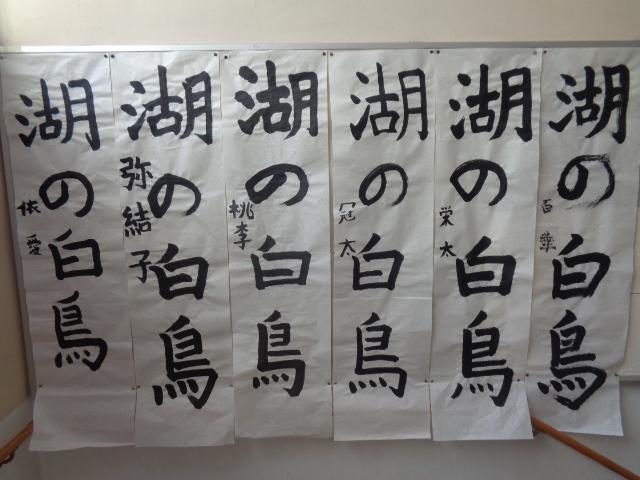 湖の白鳥
百華
湖の白鳥
栄太
湖の白鳥
冠太
湖の白鳥
桃李
湖の白鳥
弥結子
湖の白鳥
依愛